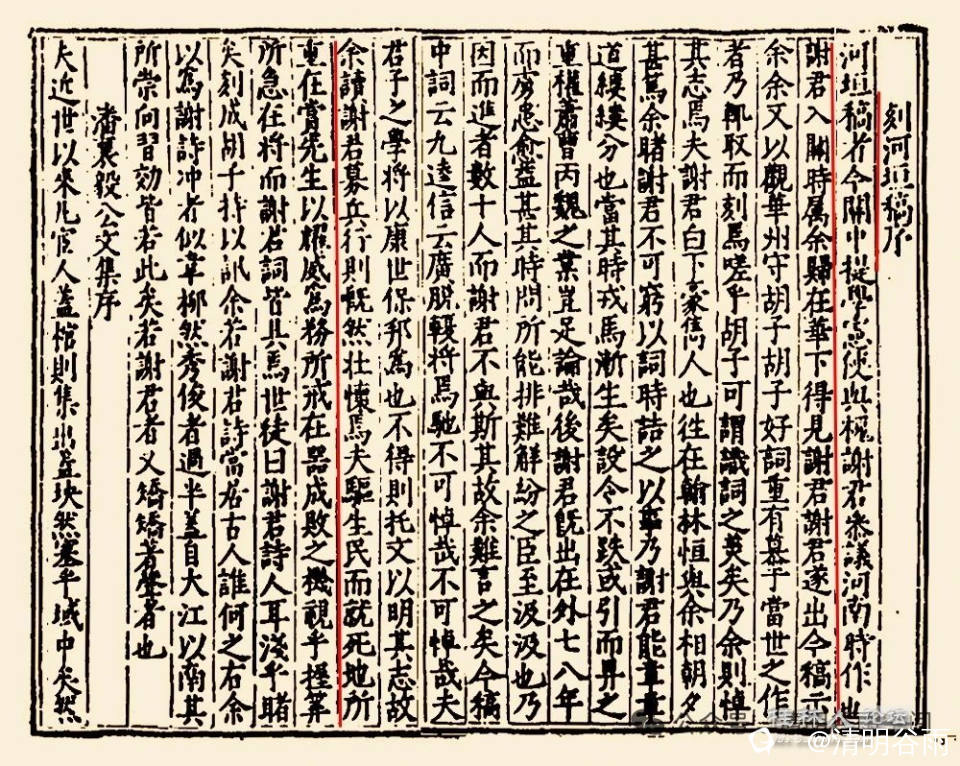 刻河垣稿序
河垣稿者今關中提學憲使與槐謝君叅議河南時作也
謝君入關時属余歸在華下得見謝君謝君遂出今稿示
余余又以觀華州守胡子胡子好詞重有慕于當世之作
者乃輒取而刻焉嗟乎胡子可謂識詞之英矣乃余則悼
其志焉夫謝君白下家雋人也徃在翰林恒與余相朝夕
甚篤余睹謝君不可窮以詞時詰之以事乃謝君能章章
道縷縷分也當其時戎馬漸生矣設令不跌或引而昇之
重權蕭曹丙魏之業豈足論哉後謝君旣出在外七八年
而虜患愈益甚其時問所能排難解紛之臣至汲汲也乃
因而進者數十人而謝君不與斯其故余難言之矣今稿
中詞云九逵信云廣脫輻將焉馳不可悼哉不可悼哉夫
君子之學將以康世保邦爲也不得則托文以明其志故
余讀謝君募兵行則慨然壯懷焉夫驅生民而就死地所
重在賞先生以耀威爲務所戒在器成敗之機視乎握筭
所急在將而謝君詞皆具焉世徒曰謝君詩人耳淺乎睹
矣刻成胡子持以訊余若謝君詩當居古人誰何之右余
以爲謝詩冲者似韋柳然秀俊者過半蓋自大江以南其
所崇向習効皆若此矣若謝君者又矯矯著聲者也
潘襄毅公文集序
夫近世以來凡宦人蓋棺則集出並坱然塞乎域中矣然
桂林人论坛
@清明谷雨